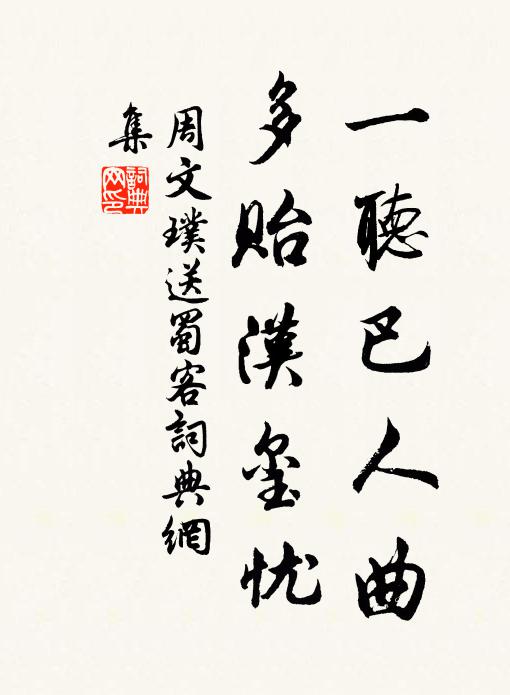 一聽巴人曲
多貽漢璽忧
周文璞送蜀客詞典網
集
詞典网印